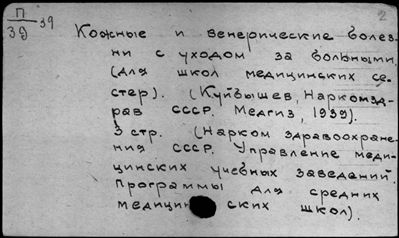 П
39
39
2
Кожные и венерические болез-
ни с уходом за больными.
(для школ медицинских се-
стер). (Куйбышев, Наркомзд-
рав СССР. Медгиз, 1939).
3 стр. (Нарком здравоохране-
ния СССР. Управление меди-
цинских учебных заведений.
Программы для средних
медицинских школ).